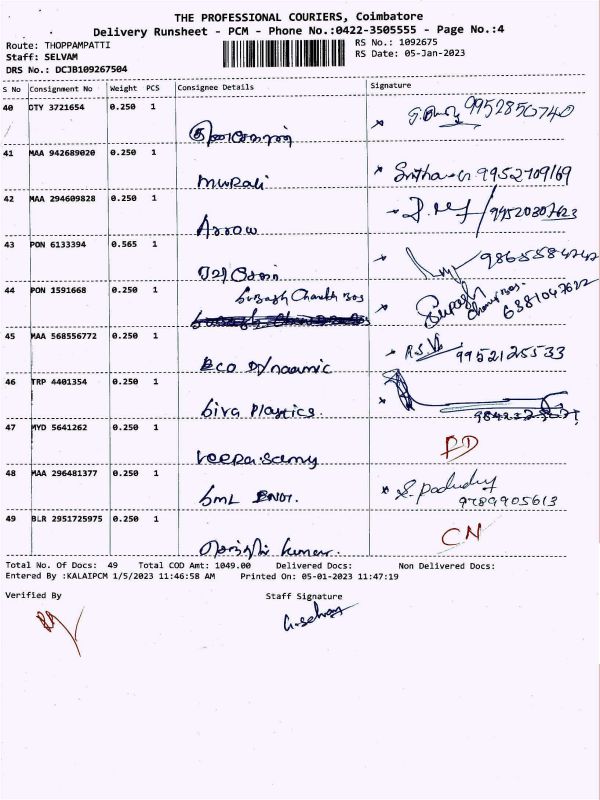 THE PROFESSIONAL COURIERS, Coimbatore
Delivery Runsheet - PCM - Phone No.:0422-3505555 - Page No.:4
Route: THOPPAMPATTI
RS No.: 1092675
Staff: SELVAM
RS Date: 05-Jan-2023
DRS No.: DCJB109267504
S No Consignment No Weight PCS Consignee Details Signature
40 OTY 3721654 0.250 1
9952850740
41 MAA 942689020 0.250 1
Murali 9952709169
42 MAA 294609828 0.250 1
Arrow 99520307623
43 PON 6133394 0.565 1
44 PON 1591668 0.250 1
Subash Chandra Bos
Subash Chandra Bos 6381047622
45 MAA 568556772 0.250 1
Eco Dynaamic R.S.V 9952125533
46 TRP 4401354 0.250 1
Siva Plastics.
47 MYD 5641262 0.250 1
Veerasamy RD
48 MAA 296481377 0.250 1
SML 9789905613
49 BLR 2951725975 0.250 1
Kumar. CN
Total No. Of Docs: 49 Total COD Amt: 1049.00 Delivered Docs: Non Delivered Docs:
Entered By :KALAIPCM 1/5/2023 11:46:58 AM Printed On: 05-01-2023 11:47:19
Verified By Staff Signature